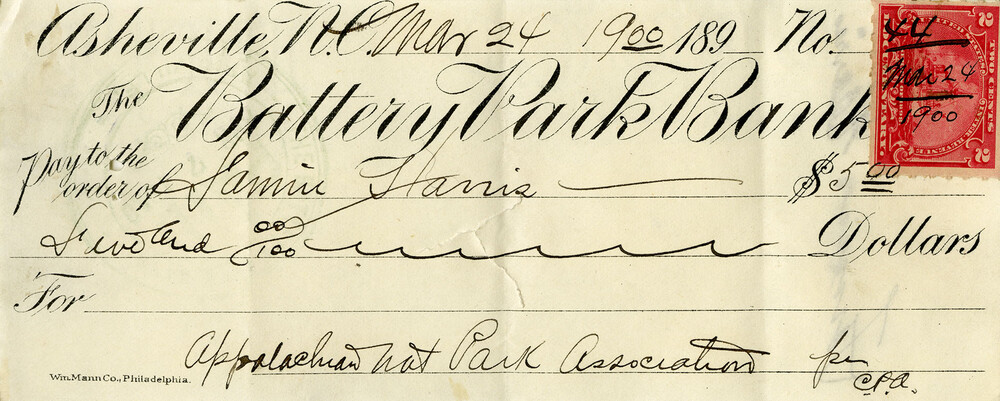 Asheville, N.C. Mar 24 1900 189 No.
44
Mar 24
1900
The Battery Park Bank
Pay to the
order of Harris $5 00
Five and 00/100 Dollars
For
Appalachian Nat Park Association per
Wm. Mann Co., Philadelphia.